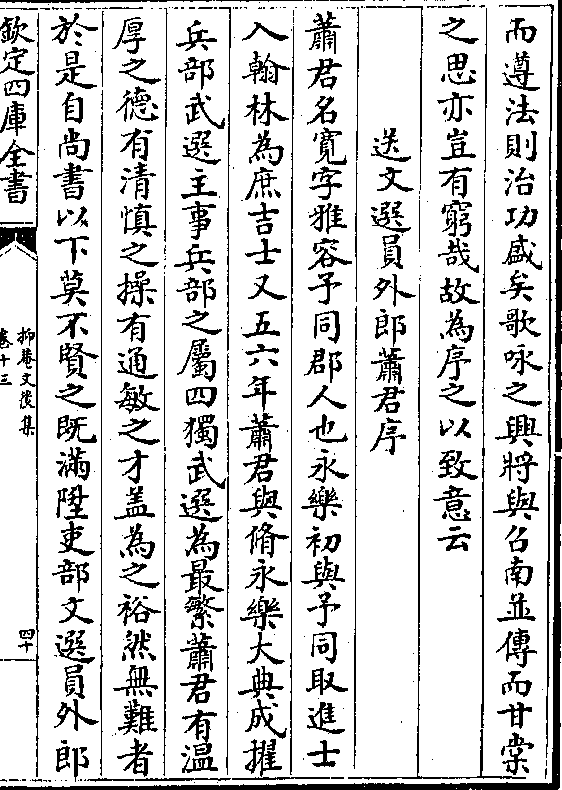 而遵法則治功盛矣歌咏之興將與召南並傳而甘棠
之思亦豈有窮哉故為序之以致意云
送文選員外郎蕭君序
蕭君名寛字雅容予同郡人也永樂初與予同取進士
入翰林為庶吉士又五六年蕭君與脩永樂大典成擢
兵部武選主事兵部之屬四獨武選為最繁蕭君有温
厚之德有清慎之操有通敏之才盖為之裕然無難者
於是自尚書以下莫不賢之既滿陞吏部文選員外郎
欽定四庫全書
抑菴文後集
卷十三
四十